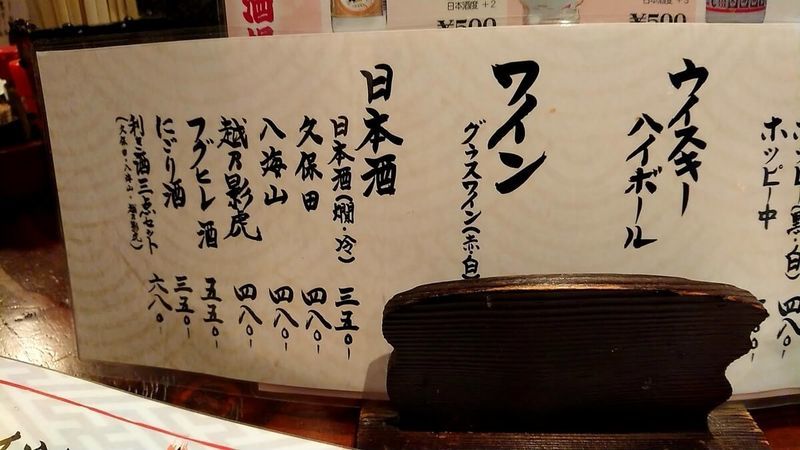 日本酒度+2
¥500
¥500
ホッピー(黒・白) 四八〇-
ホッピー中
ウイスキー
ハイボール
ワイン
グラスワイン(赤・白)
日本酒
日本酒(燗・冷) 三五〇-
久保田 四八〇-
八海山 四八〇-
越乃影虎 四八〇-
フグヒレ酒 五五〇-
にごり酒 三五〇-
利き酒三点セット 六八〇-
(久保田・八海山・越乃影虎)